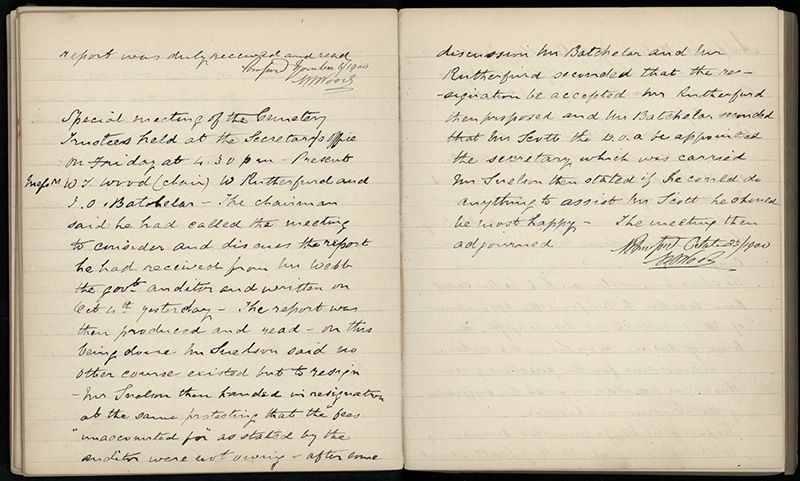 report was duly received and read
Confirmed 1900
W Wood
Special meeting of the Cemetery
Trustees held at the Secretary's office
on Friday at 4.30 pm - Present
W. T. Wood (chair) W Rutherfurd and
J. O. Batchelar - The chairman
said he had called the meeting
to consider and discuss the report
he had received from Mr Webb
the govt auditor and written on
Oct 4th yesterday - The report was
then produced and read - on this
being done Mr Snelson said no
other course existed but to resign
- Mr Snelson then handed in resignation
at the same protesting that the "fees
"unaccounted for" as stated by the
auditor were not owing - after some
discussion Mr Batchelar and Mr
Rutherfurd seconded that the re-
-signation be accepted Mr Rutherfurd
then proposed and Mr Batchelar seconded
that Mr Scott the be appointed
the secretary which was carried
Mr Snelson then stated if he could do
anything to assist Mr Scott he should
be most happy - The meeting then
adjourned
Confirmed October 23/1900
W Wood